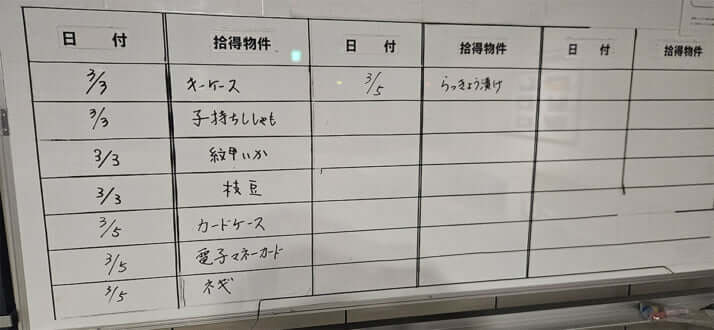 日 付 拾得物件 日 付 拾得物件 日 付 拾得物件
3/3 キーケース 3/5 らっきょう漬け
3/3 子持ちししゃも
3/3 紋甲いか
3/3 枝豆
3/5 カードケース
3/5 電子マネーカード
3/5 ネギ